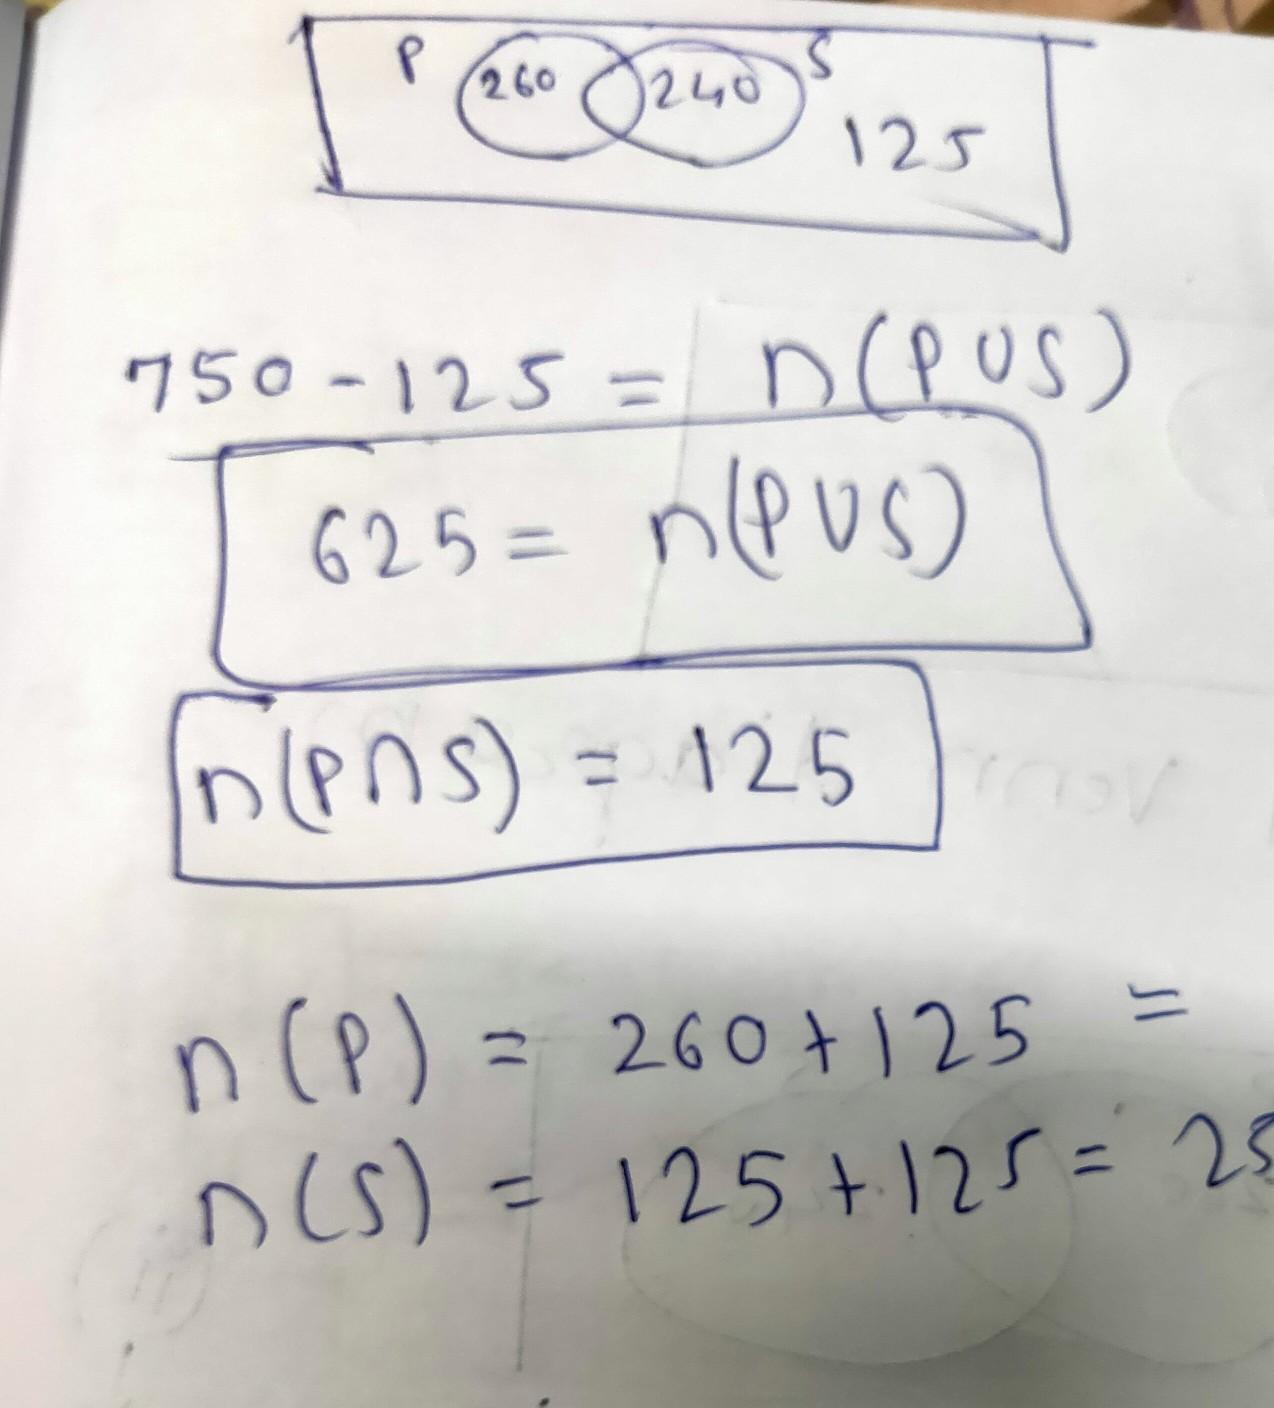 P 260 240 S
125
750 - 125 = n(P∪S)
625 = n(P∪S)
n(P∩S) = 125
n(P) = 260 + 125 =
n(S) = 125 + 125 = 25